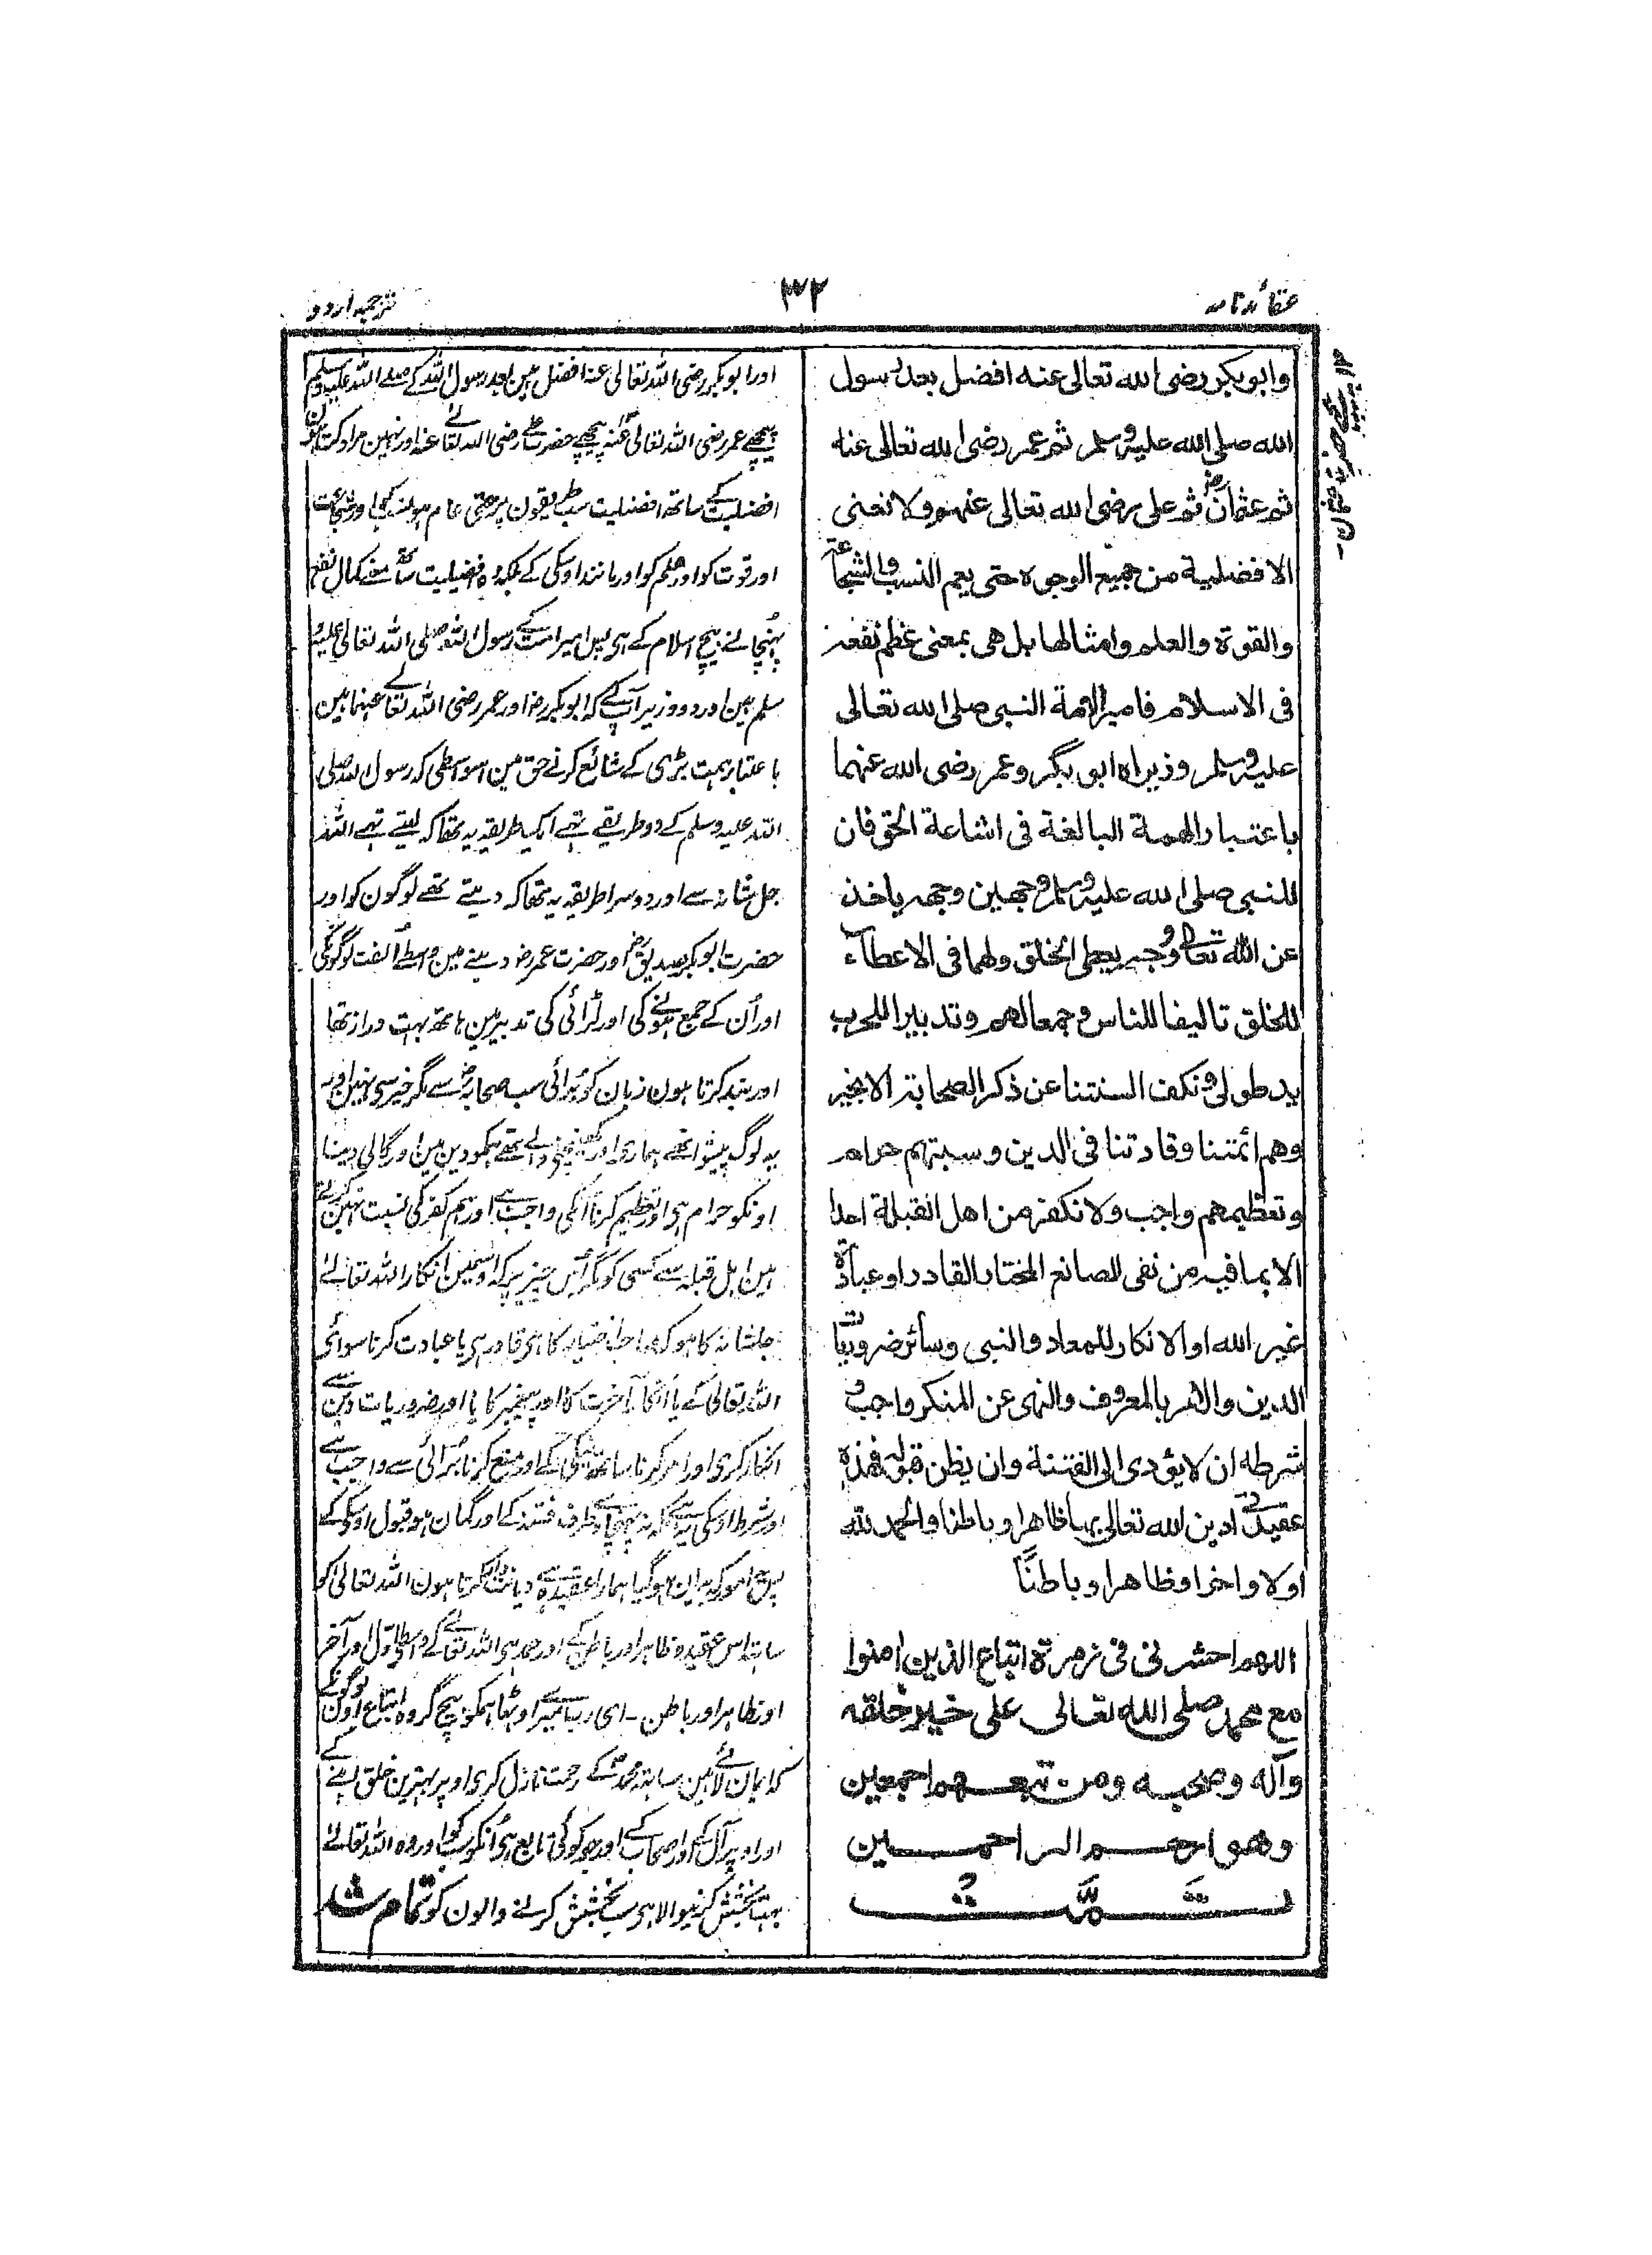 عقائد نامہ
۳۲
ترجمہ اردو
وابوبکر رضی الله تعالی عنه افضل بعد رسول
الله صلی الله علیه وسلم ثم عمر رضی الله تعالی عنه
ثم عثمان رض ثم علی رضی الله تعالی عنهم ولا نعنی
الافضلیة من جمیع الوجوه حتی یعم النسب والشجاعة
والقوة والعلم وامثالها بل هی بمعنی عظم نفعه
فی الاسلام فامیر الامة النبی صلی الله تعالی
علیه وسلم وزیراه ابوبکر وعمر رضی الله عنهما
باعتبار الهمة البالغة فی اشاعة الحق فان
للنبی صلی الله علیه وسلم وجهین وجهه یاخذ
عن الله تعالی ووجه یعطی الخلق ولهما فی الاعطاء
للخلق تالیفا للناس وجمعا لهم وتدبیرا للحرب
ید طولی ونکف السنتنا عن ذکر الصحابة الا بخیر
وهم ائمتنا وقادتنا فی الدین وسبتهم حرام
وتعظیمهم واجب ولا نکفر من اهل القبلة احدا
الا بما فیه من نفی للصانع المختار القادر او عبادة
غیر الله او الانکار للمعاد والنبی وسائر ضروریات
الدین والامر بالمعروف والنهی عن المنکر واجب و
شرطه ان لا یؤدی الی الفتنة وان یظن قبوله فهذه
عقیدتی ادین الله تعالی بها ظاهرا وباطنا والحمد لله
اولا واخرا وظاهرا وباطنًا
اللهم احشرنی فی زمرة اتباع الذین امنوا
مع محمد صلی الله تعالی علی خیر خلقه
وآله وصحبه ومن تبعهم اجمعین
وهو ارحم الراحمین
تَمَّتْ
اور ابوبکر رضی اللہ تعالی عنہ افضل ہین بعد رسول اللہ کے صلے اللہ علیہ وسلم
پیچھے عمر رضی اللہ تعالی عنہ پیچھے حضرت علے رضی اللہ تعالے عنہ اور نہین مراد کرتا ہون
افضلیت کے ساتھ افضلیت سب طریقون پر حتی عام ہو نسب کو اور شجاعت
اور قوت کو اور علم کو اور مانند اوسکی کے بلکہ وہ فضیلیت ساتھ معنے کمال نفع
پہنچانے بیچ اسلام کے ہی پس امیر امت کے رسول اللہ صلی اللہ تعالی علیہ و
سلم ہین اور دو وزیر آپ کے کہ ابوبکر رض اور عمر رضی اللہ تعالے عنہما ہین
باعتبار ہمت بڑی کے شائع کرنے حق مین اسواسطی کہ رسول اللہ صلی
اللہ علیہ وسلم کے دو طریقے تھے ایک طریقہ یہ تھا کہ لیتے تھے اللہ
جل شانہ سے اور دوسرا طریقہ یہ تھا کہ دیتے تھے لوگون کو اور
حضرت ابوبکر صدیق رض اور حضرت عمر رض دینے مین واسطے الفت لوگونکی
اور اُن کے جمع ہونے کی اور لڑائی کی تدبیر مین ہاتھ بہت دراز تھا
اور بند کرتا ہون زبان کو برائی سب صحابہ رض سے مگر خیر سی نہین اور
یہ لوگ پیشوا تھے ہماری اور کھینچنے والے تھے ہمکو دین مین اور گالی دینا
اونکو حرام ہی اور تعظیم کرنا اُنکی واجب ہے اور ہم کفر کی نسبت نہین کرتے
ہین اہل قبلہ سے کسی کو مگر اُس چیز پر کہ اوسمین انکار اللہ تعالے
جلشانہ کا ہو کہ صاحب اختیار کا ہی قادر ہی یا عبادت کرنا سوائی
اللہ تعالی کے یا انکار آخرت کا اور پیغمبر کا یا اور ضروریات دین سے
انکار کری اور امر کرنا ساتھ نیکی کے اور منع کرنا برائی سے واجب ہے
اور شرط اوسکی یہ ہے کہ نہ پہنچاے طرف فتنہ کے اور گمان ہو قبول اوسکو کے
پس جو کہ بیان ہو گیا ہمارا عقیدہ ہے دیانت کرتا ہون اللہ تعالی کو
ساتھ اس عقیدہ ظاہر اور باطن کے اور حمد ہی اللہ تعالے کے واسطی اول اور آخر
اور ظاہر اور باطن - ای رب میرے اوٹھا ہمکو بیچ گروہ اتباع اون لوگونکے
کہ ایمان لائے ہین ساتھ محمد کے رحمت نازل کری اوپر بہترین خلق اپنے کے
اور اوپر آل کے اور اصحاب کے اور جو کوئی تابع ہی اُنکو سبکو اور وہ اللہ تعالے
بہت بخشش کرنیوالا ہی سب بخشش کرنے والون کو تمام شد